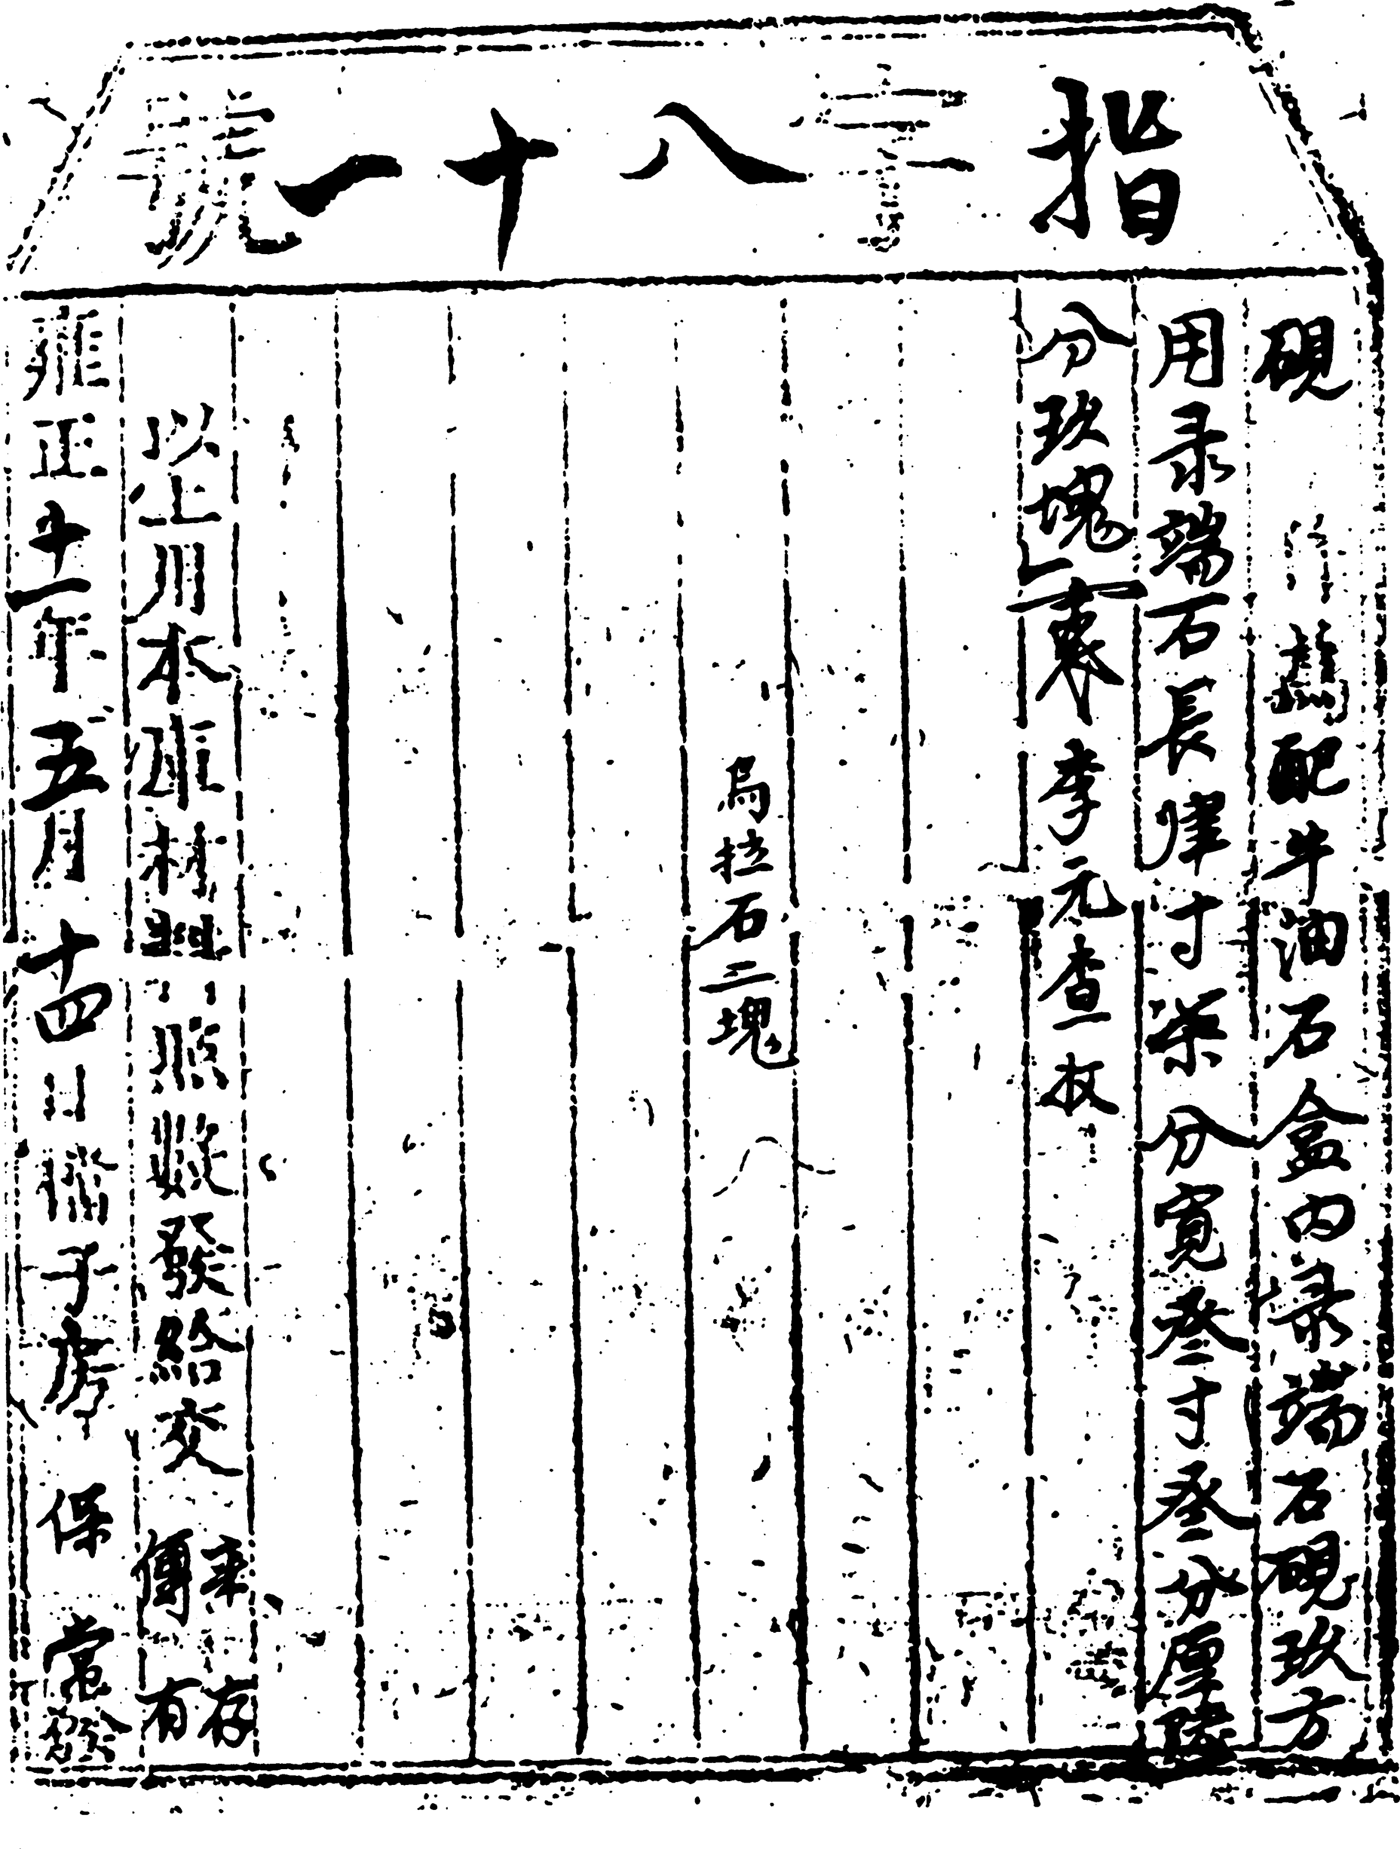 指字八十一號
硯 作為配牛油石盒內录端石硯玖方
用录端石長肆寸柒分寬叁寸叁分厚陸
分玖塊
李元查一枚
烏拉石二塊
以上用本庫材料照數發給交 來傳 存有
雍正十一年五月十四日檔子房 保 常發